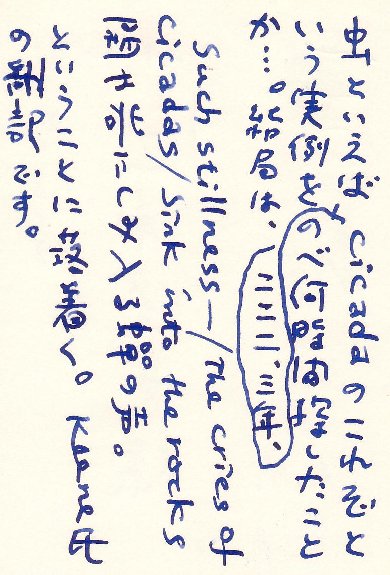 虫といえば cicadaのこれぞと
いう実例をのべ何時間探したこと
か…。結局は、
ここ二、三年、
Such stillness—/The cries of
cicadas/Sink into the rocks
閑や岩にしみ入る蝉の声。
ということに落着く。Keene氏
の飜訳です。